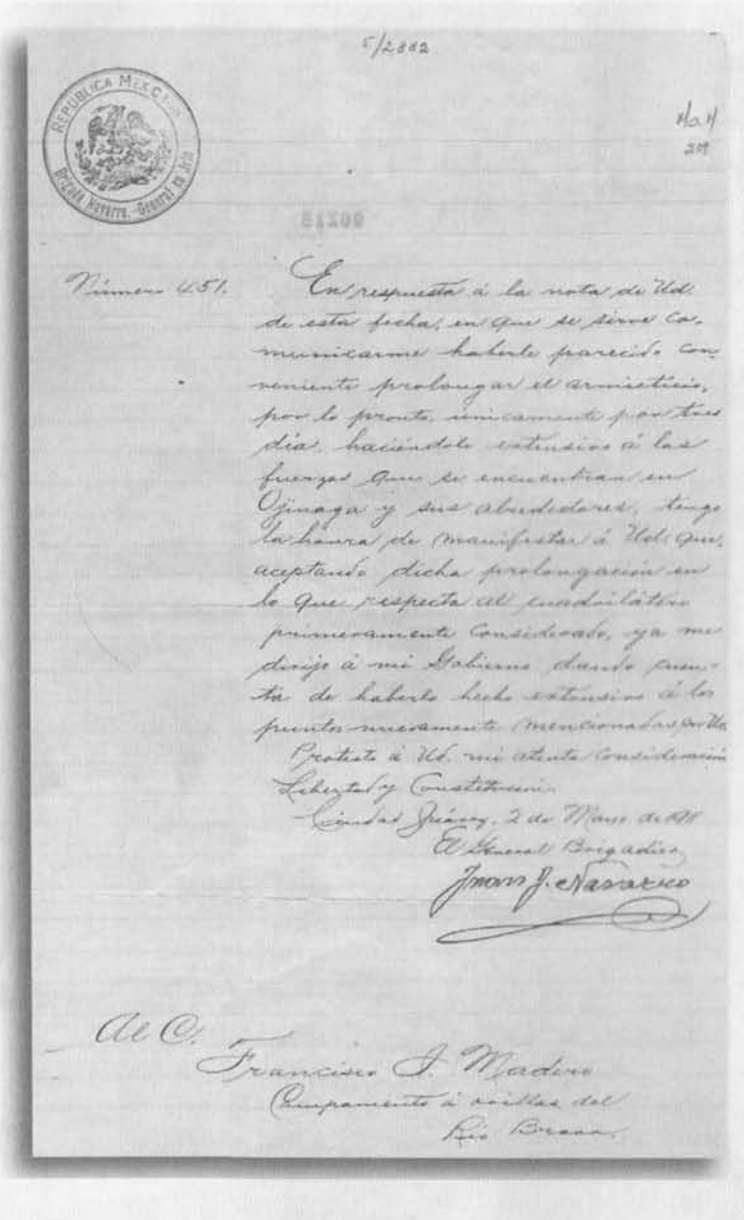 5/2882
REPÚBLICA MEXICANA
Brigada Navarro.-General en Jefe
209
00218
Número 451.
En respuesta á la nota de Ud.
de esta fecha, en que se sirve co-
municarme haberle parecido con-
veniente prolongar el armisticio,
por lo pronto, únicamente por tres
día, haciéndolo extensivo á las
fuerzas que se encuentran en
Ojinaga y sus alrededores, tengo
la honra de manifestar á Ud. que,
aceptando dicha prolongación en
lo que respecta al cuadrilátero
primeramente considerado, ya me
dirijo á mi Gobierno dando cuen-
ta de haberlo hecho extensivo á los
puntos nuevamente mencionados por Ud.
Protesto á Ud. mi atenta consideración
Libertad y Constitución.
Ciudad Juárez, 2 de Mayo de 1911
El General Brigadier,
Juan J. Navarro
Al C.
Francisco I. Madero
Campamento á orillas del
Río Bravo.